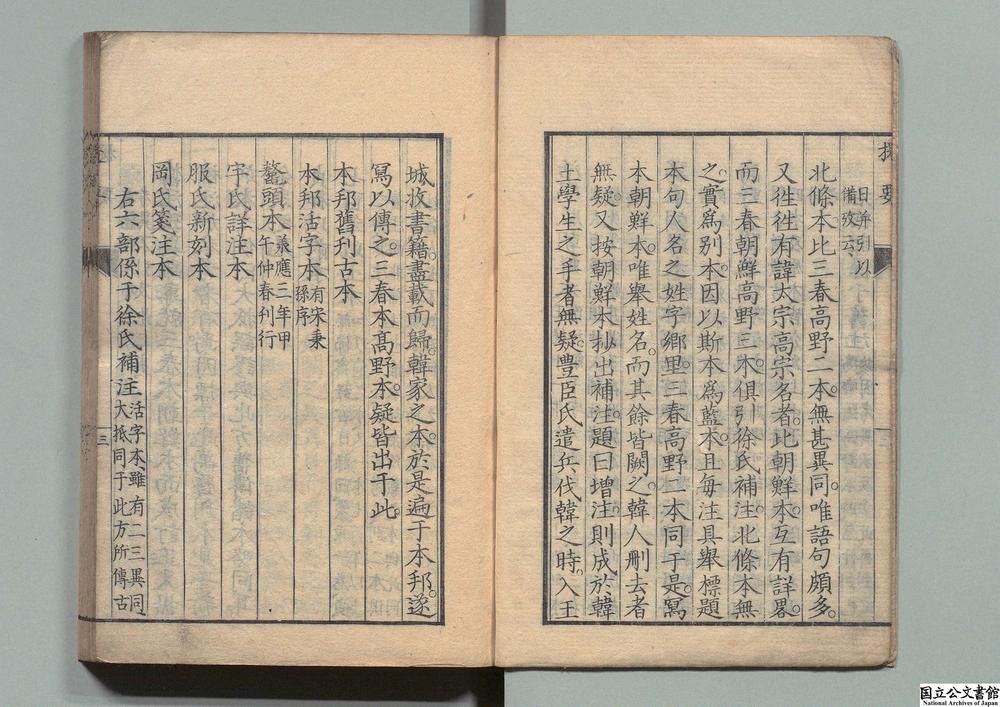 日并引以
備攷云
北條本比三春高野二本。無甚異同。唯語句頗多。
又徃徃有諱太宗高宗名者。比朝鮮本。互有詳畧。
而三春朝鮮高野三本。俱引徐氏補注。北條本無
之。實爲別本。因以斯本爲藍本。且每注具擧標題
本句人名之姓字鄕里。三春高野二本同于是。寫
本朝鮮本。唯擧姓名。而其餘皆闕之。韓人刪去者
無疑。又按朝鮮本抄出補注。題曰增注。則成於韓
土學生之手者無疑。豊臣氏遣兵伐韓之時。入王
城收書籍。盡載而歸。韓家之本。於是遍于本邦。遂
寫以傳之。三春本高野本。疑皆出于此。
本邦舊刊古本
本邦活字本 有宋秉
孫序
鼇頭本 承應三年甲
午仲春刊行
宇氏詳注本
服氏新刻本
岡氏箋注本
右六部係于徐氏補注 活字本雖有二三異同。
大抵同于此方所傳古
三
国立公文書館
National Archives of Japan